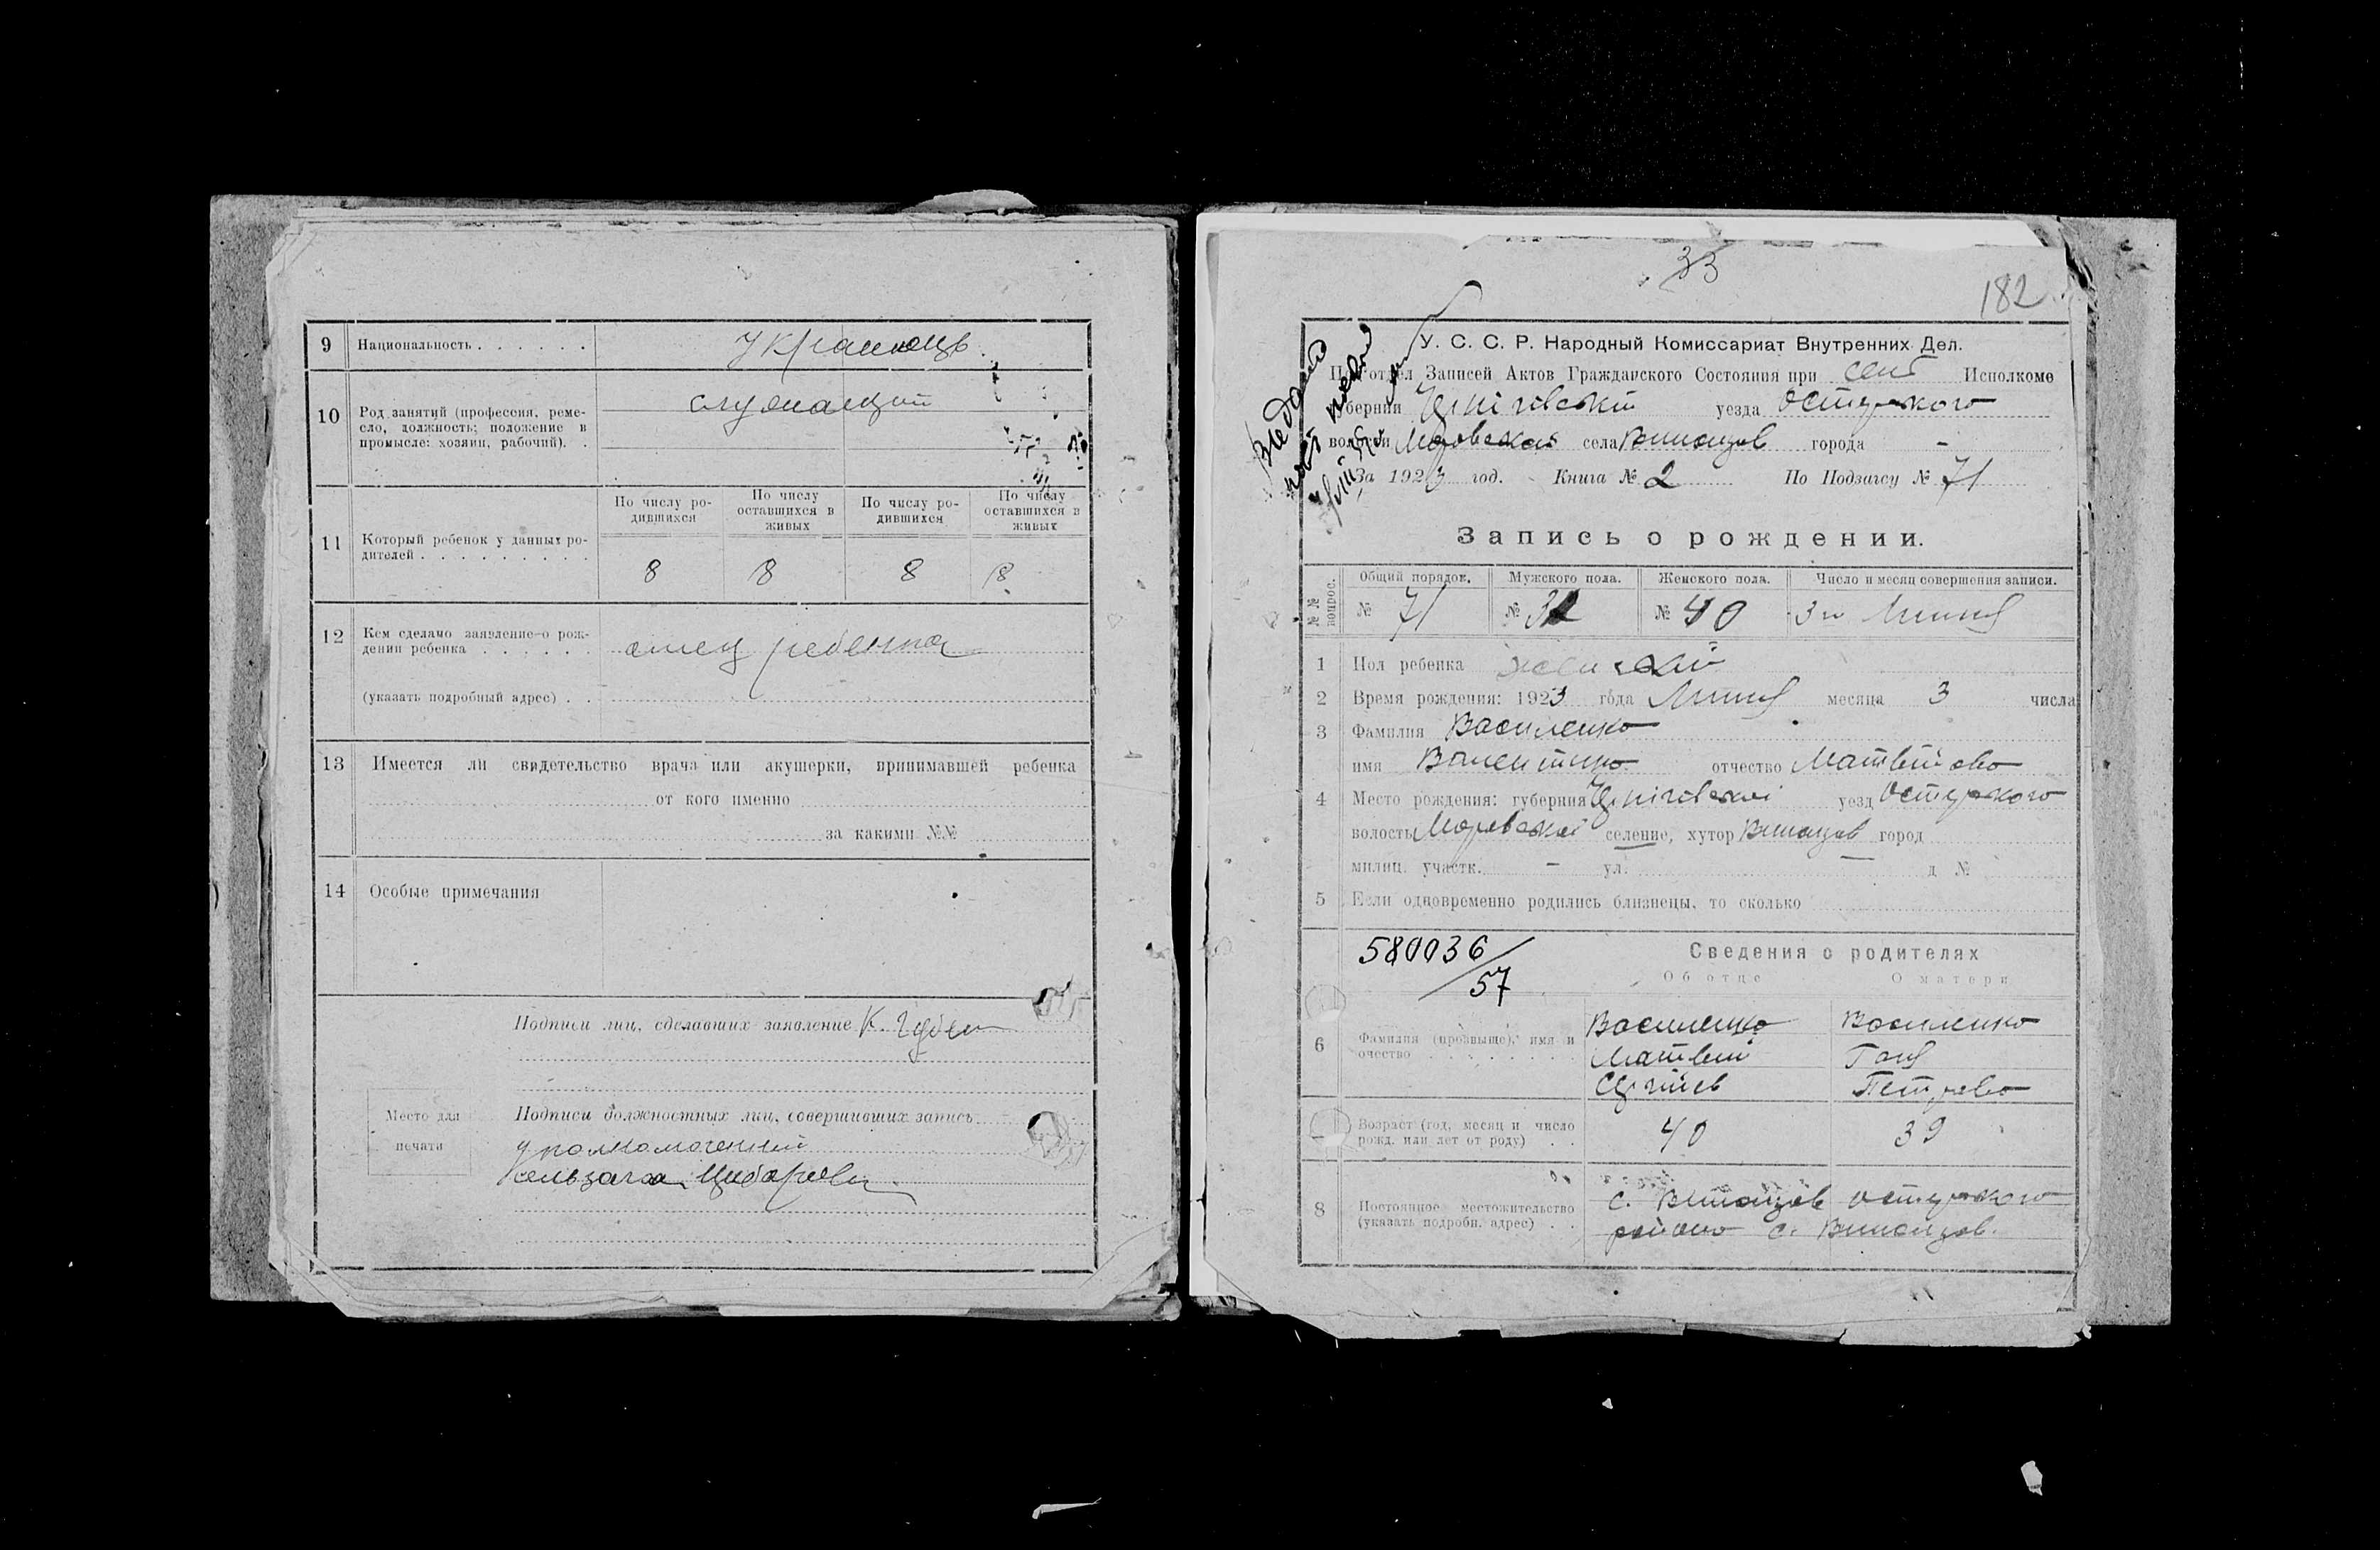 9 Национальность . . . . . . Украинець
10 Род занятий (профессия, реме-
сло, должность; положение в
промысле: хозяин, рабочий). .
служащий
По числу ро-
дившихся
По числу
оставшихся в
живых
По числу ро-
дившихся
По числу
оставшихся в
живых
11 Который ребенок у данных ро-
дителей . . . . . . . . .
8 8 8 8
12 Кем сделано заявление о рож-
дении ребенка . . . . . . отец ребенка
(указать подробный адрес) . .
13 Имеется ли свидетельство врача или акушерки, принимавшей ребенка
от кого именно
за какими №№
14 Особые примечания
Подписи лиц, сделавших заявление К.
Место для
печати
Подписи должностных лиц, совершивших запись
уполномоченный
сельзагса
33
182
У. С. С. Р. Народный Комиссариат Внутренних Дел.
Подотдел Записей Актов Гражданского Состояния при Исполкоме
губернии уезда Остерского
волости Моровской села города -
За 1923 год. Книга № 2 По Подзагсу № 71
Запись о рождении.
№№ вопрос.
Общий порядок. Мужского пола. Женского пола. Число и месяц совершения записи.
№ 71 № 31 № 40 3
1 Пол ребенка женский
2 Время рождения: 1923 года месяца 3 числа
3 Фамилия Василенко
имя Валентина отчество
4 Место рождения: губерния уезд Остерского
волость Моровской селение, хутор город
милиц. участк. — ул. — д №
5 Если одновременно родились близнецы, то сколько
580036/57
Сведения о родителях
Об отце О матери
6 Фамилия (прозвище), имя и
очество . . . . . . . .
Василенко Василенко
Матвей
Петрова
Возраст (год, месяц и число
рожд. или лет от роду) . .
40 39
8 Постоянное местожительство
(указать подробн. адрес) . .
с. Остерского
района с.